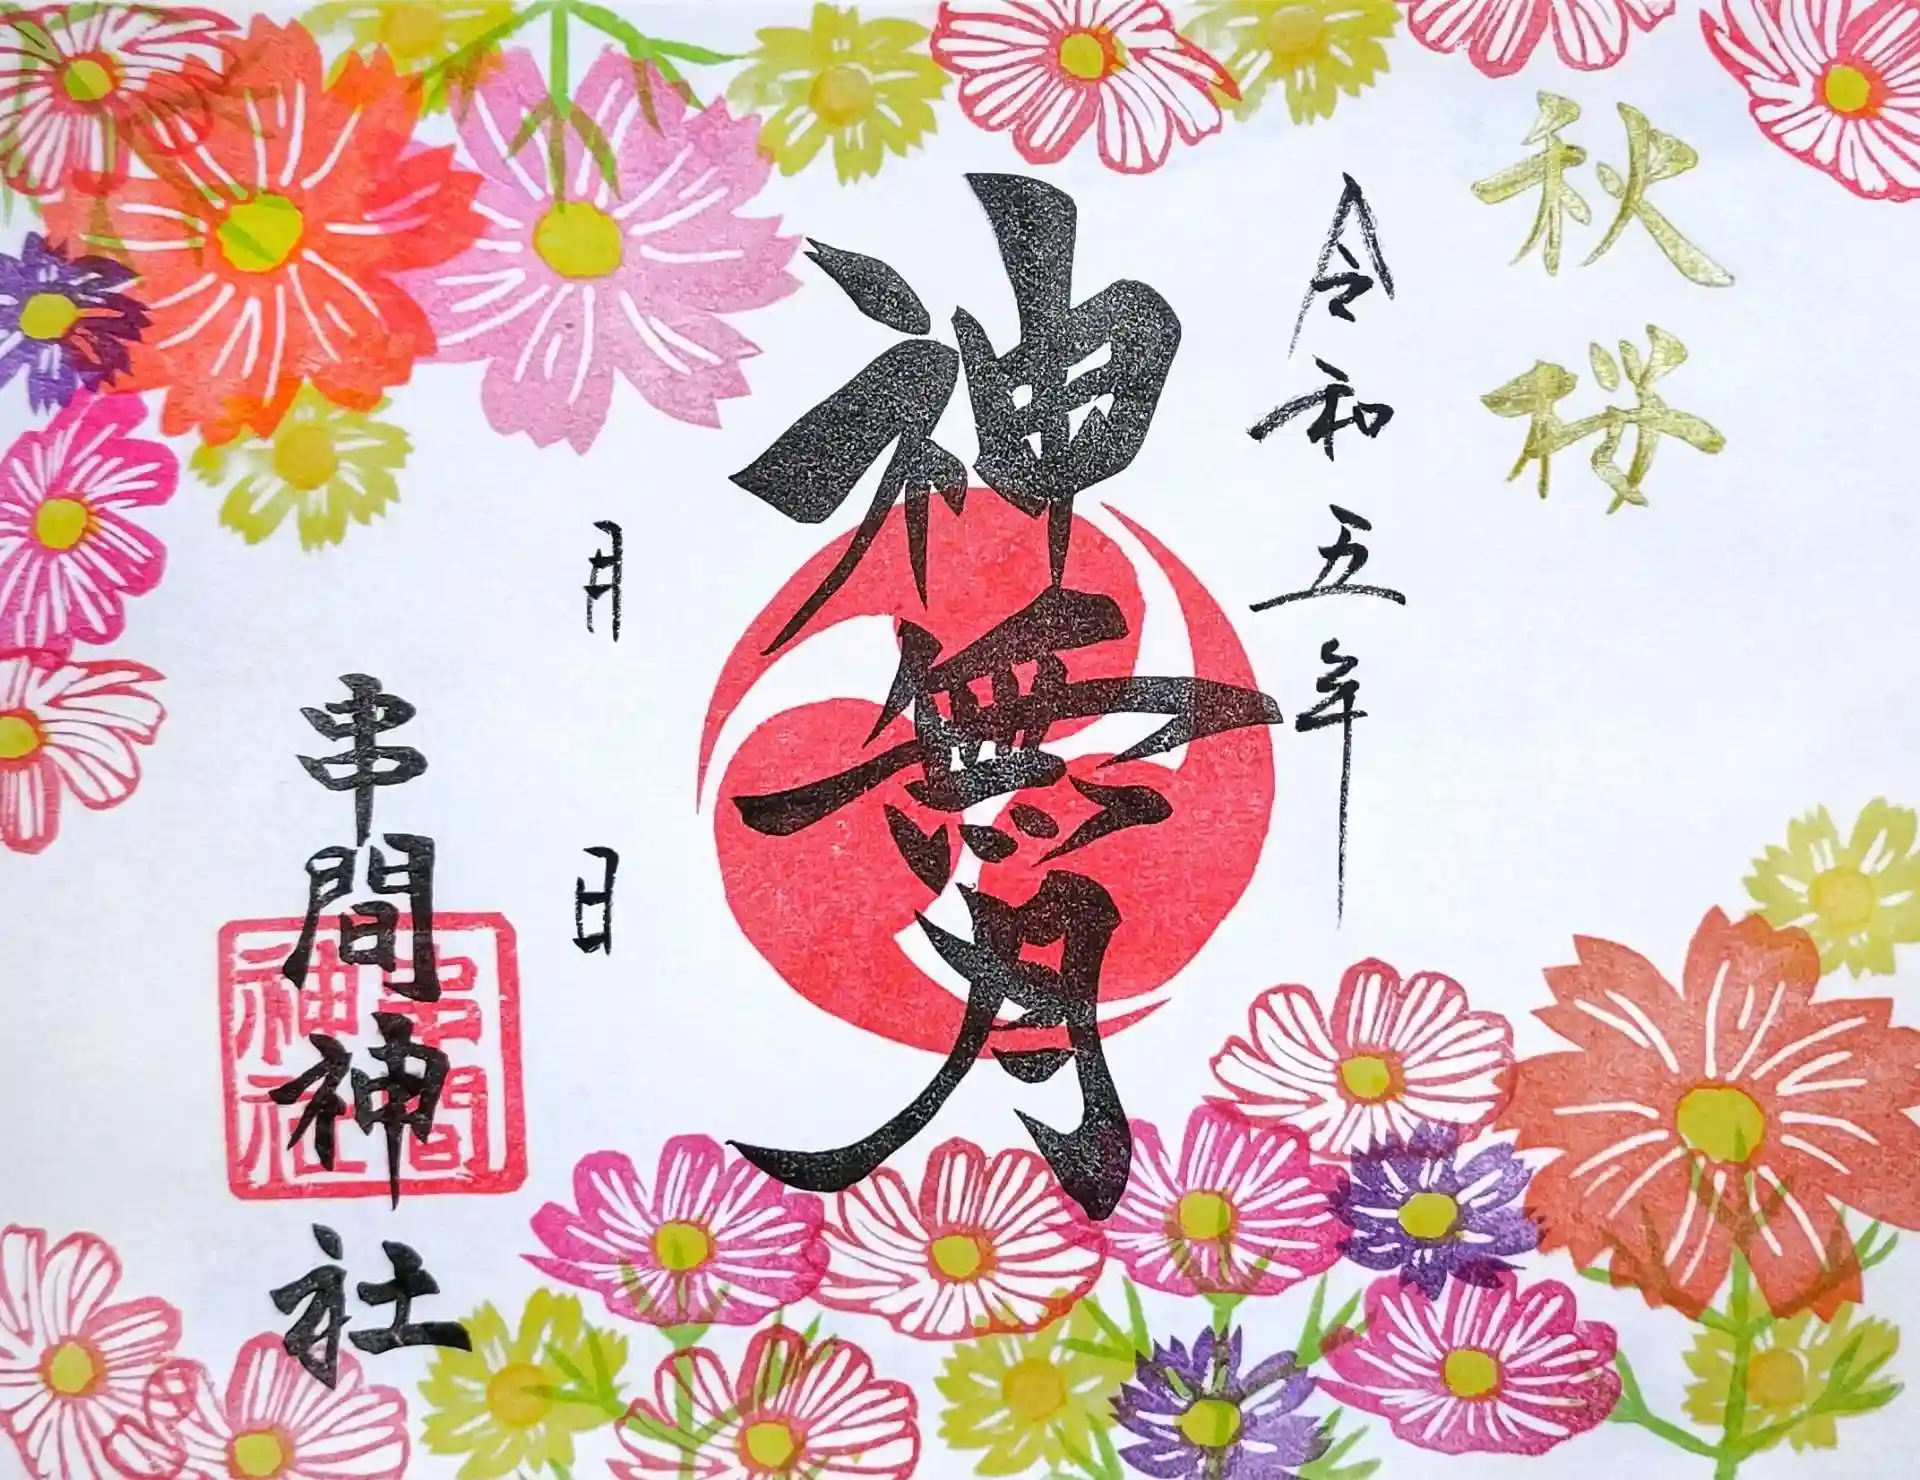 秋桜
令和五年
神無月
月 日
串間神社
串間
神社